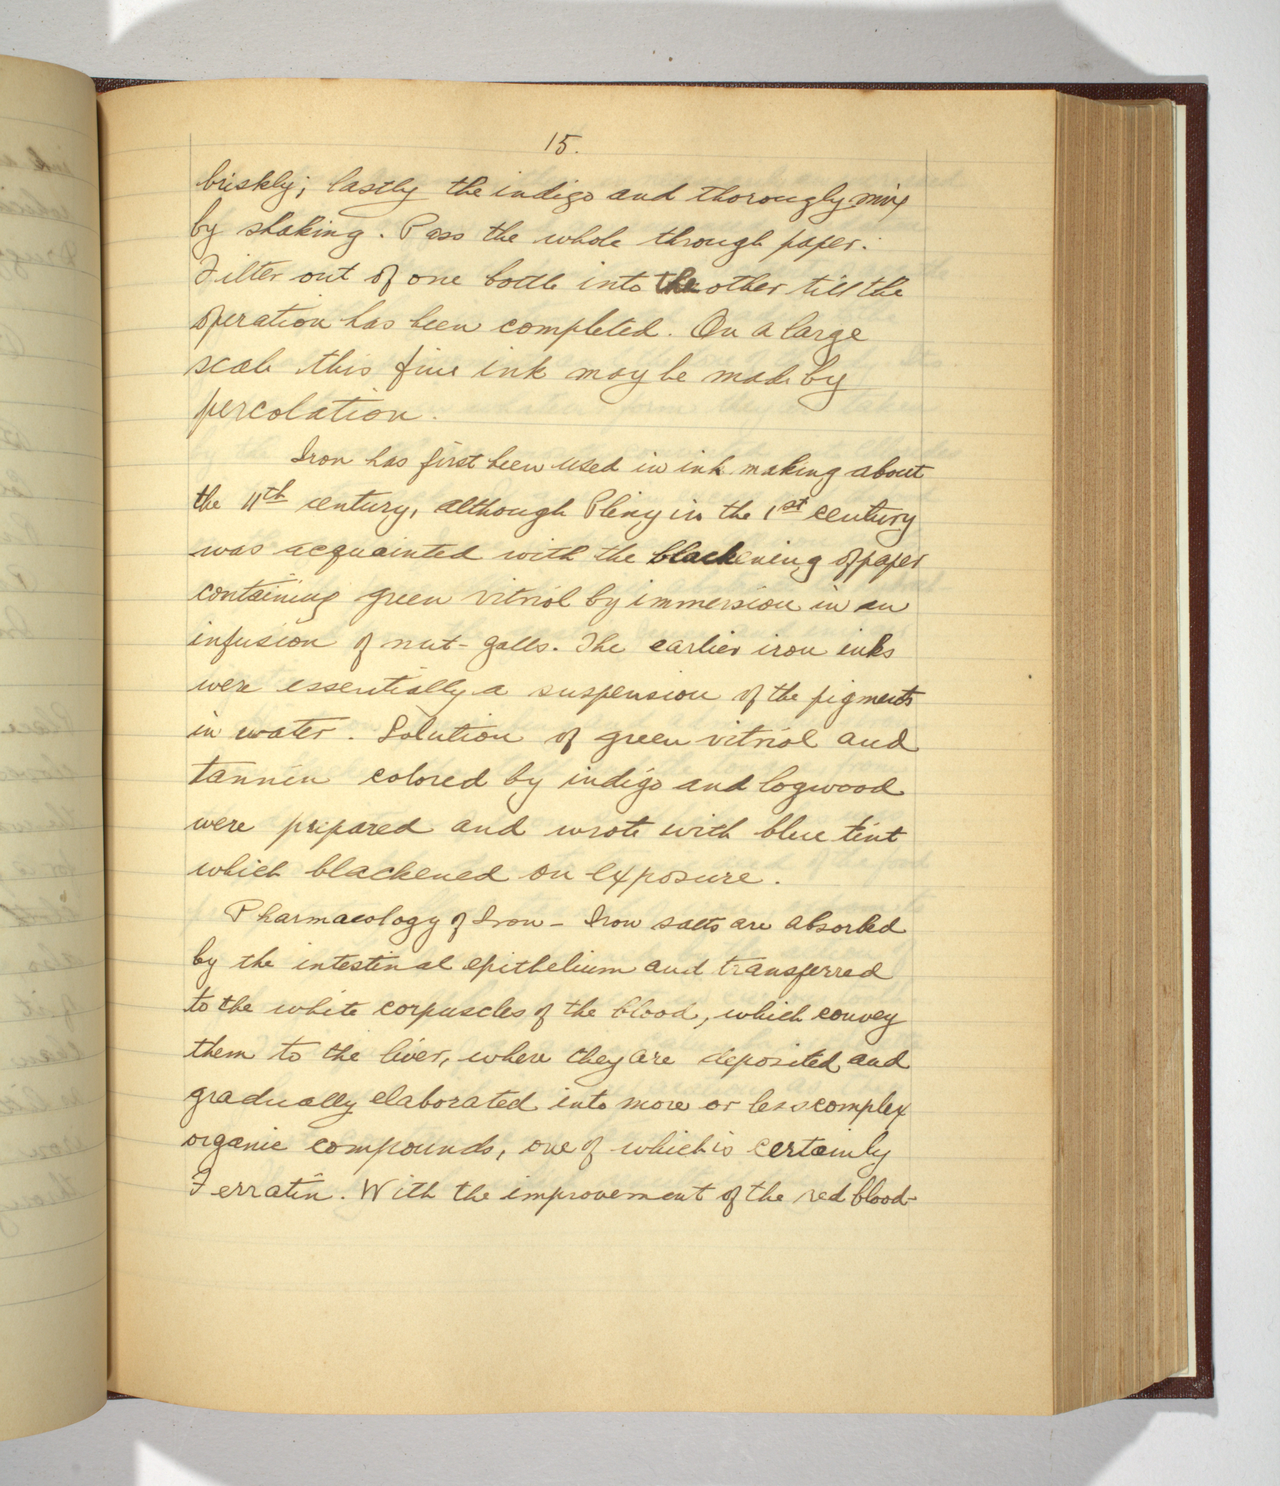 15.
briskly; lastly the indigo and thorougly mix
by shaking. Pass the whole through paper.
Filter out of one bottle into the other till the
operation has been completed. On a large
scale this fine ink may be made by
percolation.
Iron has first been used in ink making about
the 11th century, although Pliny in the 1st century
was acquainted with the blackening of paper
containing green vitriol by immersion in an
infusion of nut-galls. The earlier iron inks
were essentially a suspension of the pigments
in water. Solution of green vitriol and
tannin colored by indigo and logwood
were prepared and wrote with blue tint
which blackened on exposure.
Pharmacology of Iron - Iron salts are absorbed
by the intestinal epithelium and transferred
to the white corpuscles of the blood, which convey
them to the liver, where they are deposited and
gradually elaborated into more or less complex
organic compounds, one of which is certainly
Ferratin. With the improvement of the red blood-